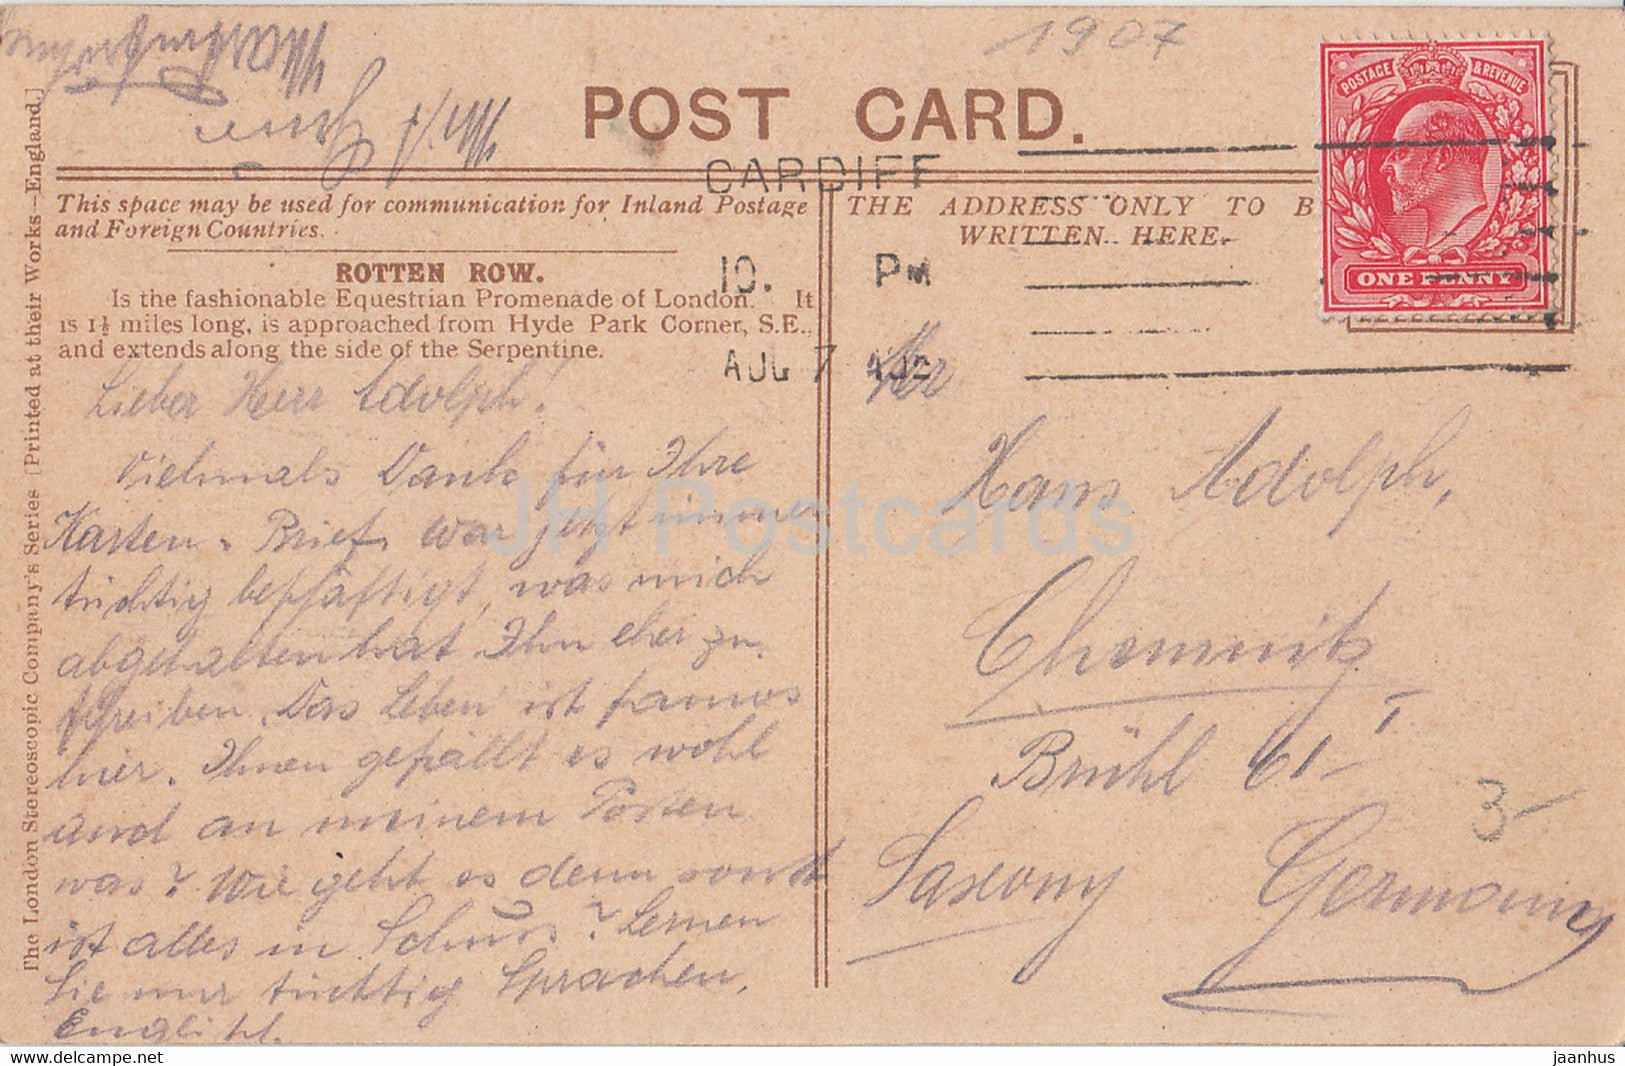 1907
POST CARD.
CARDIFF
10. PM
AUG 7
POSTAGE & REVENUE
ONE PENNY
This space may be used for communication for Inland Postage
and Foreign Countries.
THE ADDRESS ONLY TO B
WRITTEN HERE.
ROTTEN ROW.
Is the fashionable Equestrian Promenade of London. It
is 1½ miles long, is approached from Hyde Park Corner, S.E.,
and extends along the side of the Serpentine.
The London Stereoscopic Company's Series [Printed at their Works—England.]
Lieber Herr Adolph!
Vielmals Dank für Ihre
Karten u. Brief, war jetzt immer
tüchtig beschäftigt, was mich
abgehalten hat Ihn eher zu
schreiben. Das Leben ist famos
hier. Ihnen gefällt es wohl
und an meinem Posten
was? Wie geht es denn sonst
ist alles in Schuss? Lernen
Sie nur tüchtig Sprachen,
Englisch.
Herr
Hans Adolph,
Chemnitz
Brühl 61 I
Saxony Germany
3-
JH Postcards
www.delcampe.net
jaanhus